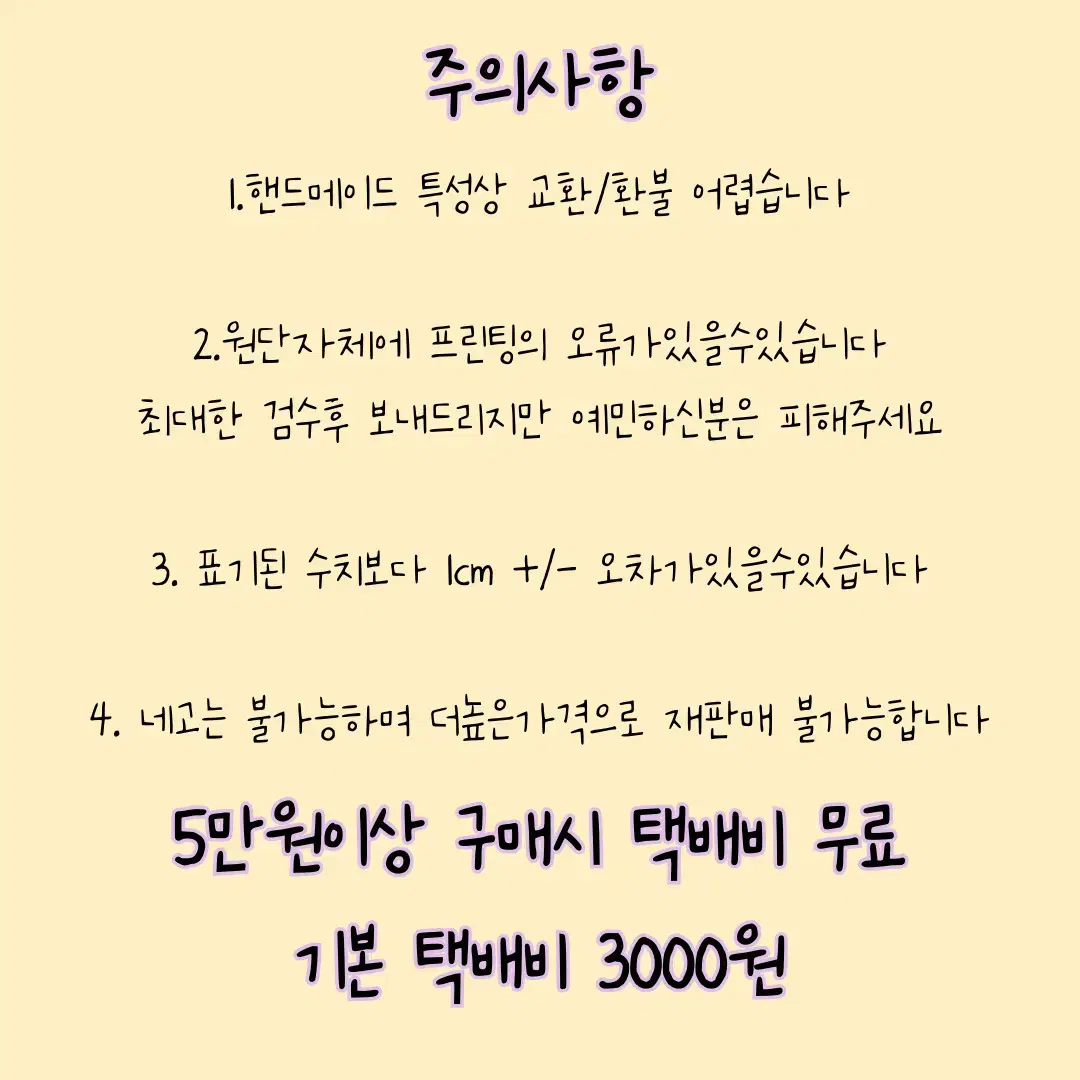 주의사항
1.핸드메이드 특성상 교환/환불 어렵습니다
2.원단자체에 프린팅의 오류가있을수있습니다
최대한 검수후 보내드리지만 예민하신분은 피해주세요
3. 표기된 수치보다 1cm +/- 오차가있을수있습니다
4. 네고는 불가능하며 더높은가격으로 재판매 불가능합니다
5만원이상 구매시 택배비 무료
기본 택배비 3000원